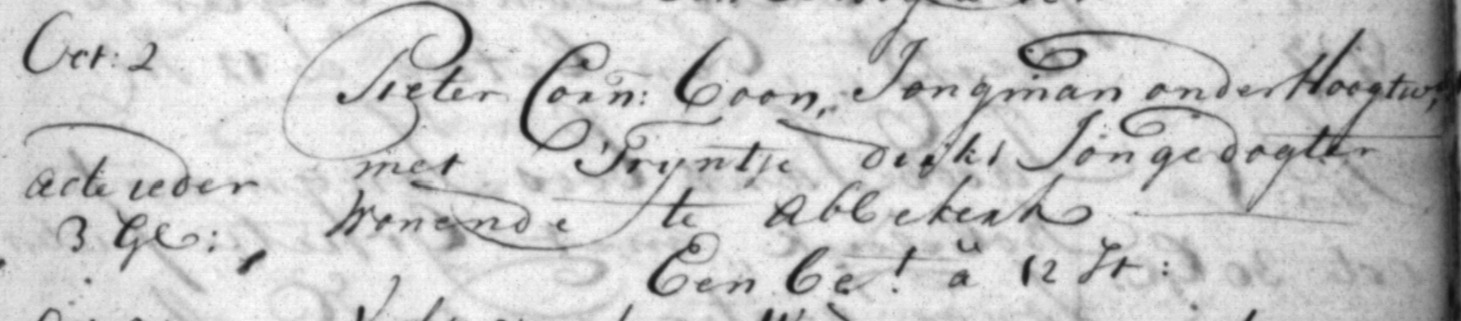 Oct: 2
Pieter Corn: Coon, Jongman onder Hoogtw:
met Tryntje dirks Jongedogter
acte ieder
3 Gl:
Wonende te Abbekerk
Een Ce! â 12 St: